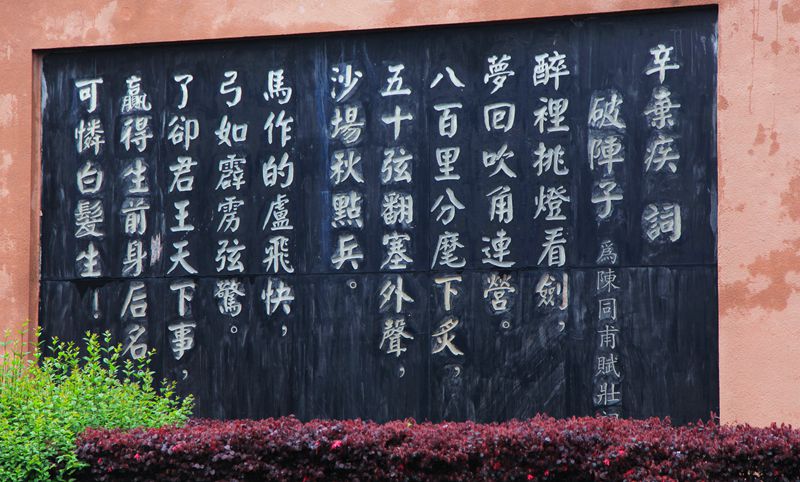 辛棄疾 詞
破陣子 爲陳同甫賦壯詞
醉裡挑燈看劍，
夢回吹角連營。
八百里分麾下炙，
五十弦翻塞外聲，
沙場秋點兵。
馬作的盧飛快，
弓如霹雳弦驚。
了卻君王天下事，
贏得生前身后名
可憐白髮生！